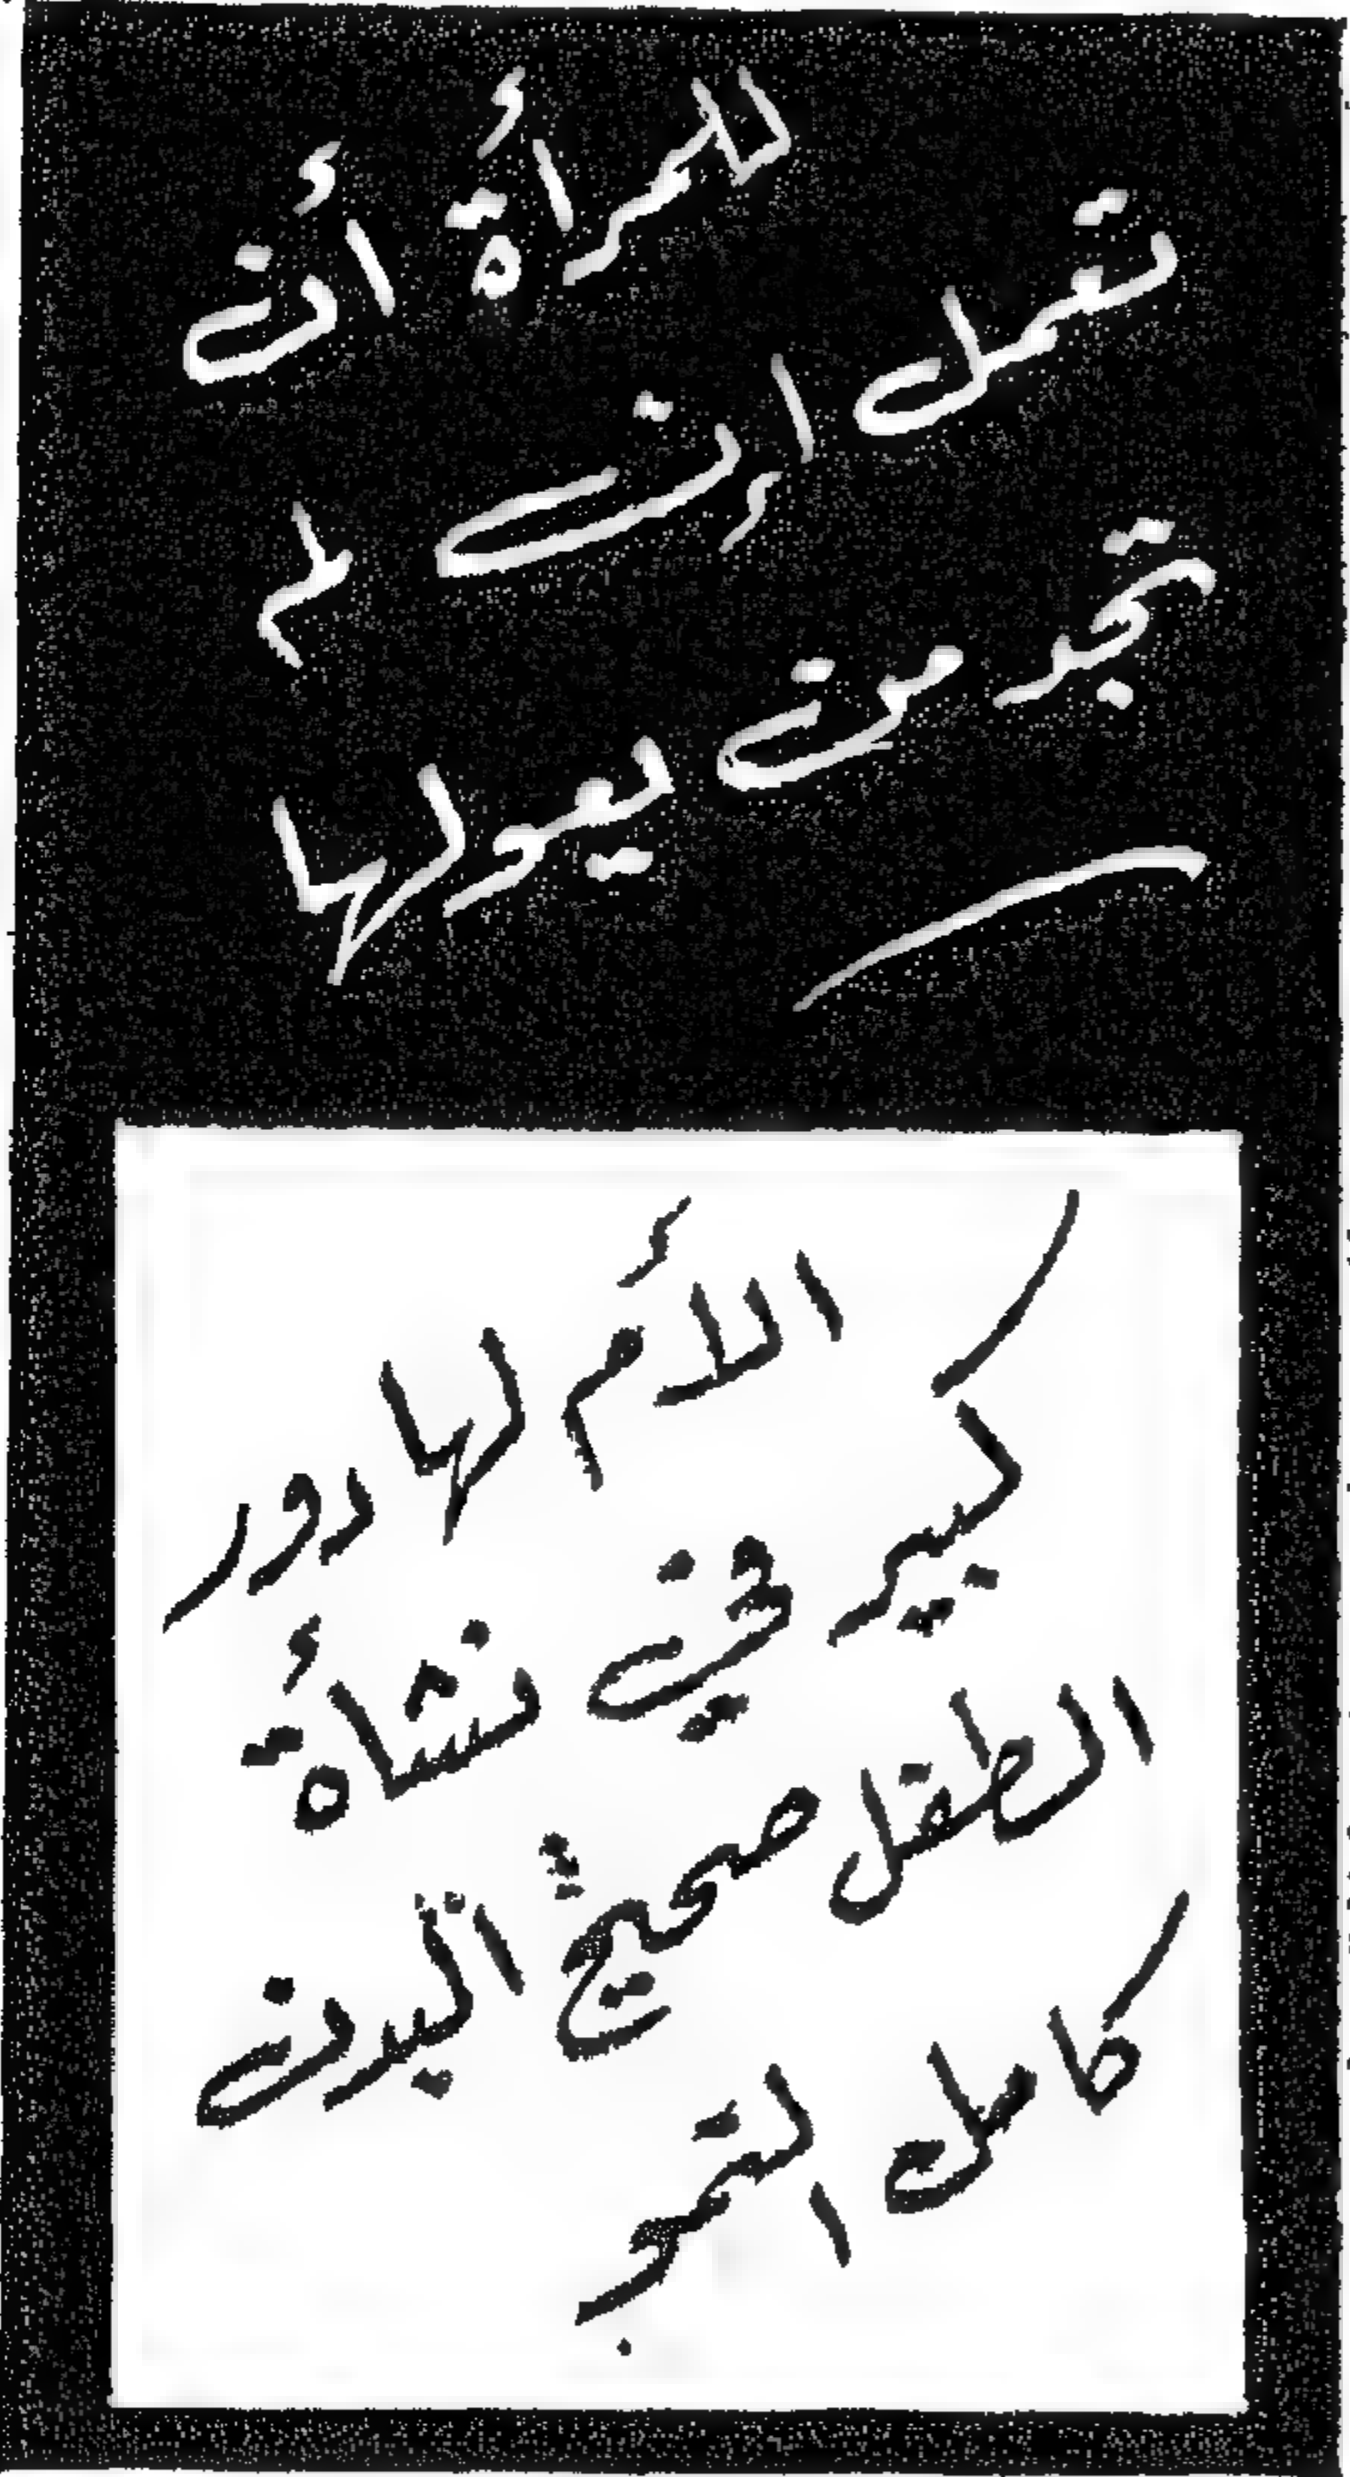 للمرأة أن
تعمل إن لم
تجد من يعولها
الأم لها دور
كبير في نشأة
الطفل صحيح البدن
كامل النمو